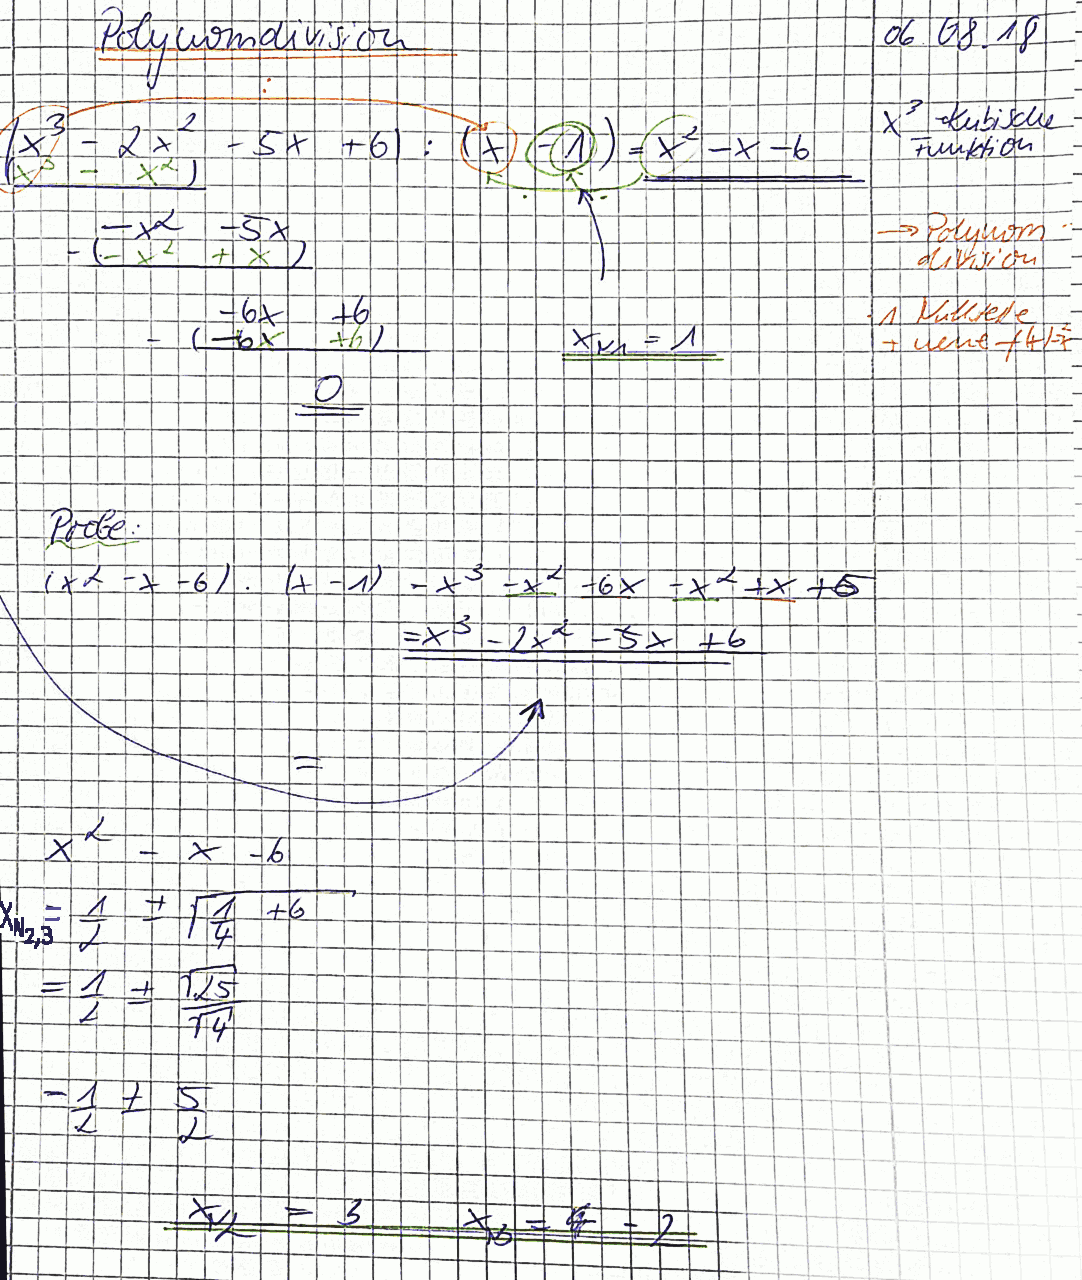 Polynomdivision 06.08.18
(x³ - 2x² - 5x + 6) : (x - 1) = x² - x - 6
(x³ - x²)
-x² -5x
-(-x² + x)
-6x +6
-(-6x +6)
0
x_N1 = 1
x³ → kubische
Funktion
→ Polynom
division
1 Nullstelle
Probe:
(x² - x - 6) · (x - 1) = x³ - x² - 6x - x² + x + 6
= x³ - 2x² - 5x + 6
=
x² - x - 6
x_N2,3 = 1/2 ± √(1/4 + 6)
= 1/2 ± √25/√4
= 1/2 ± 5/2
x_N2 = 3 x_N3 = -2